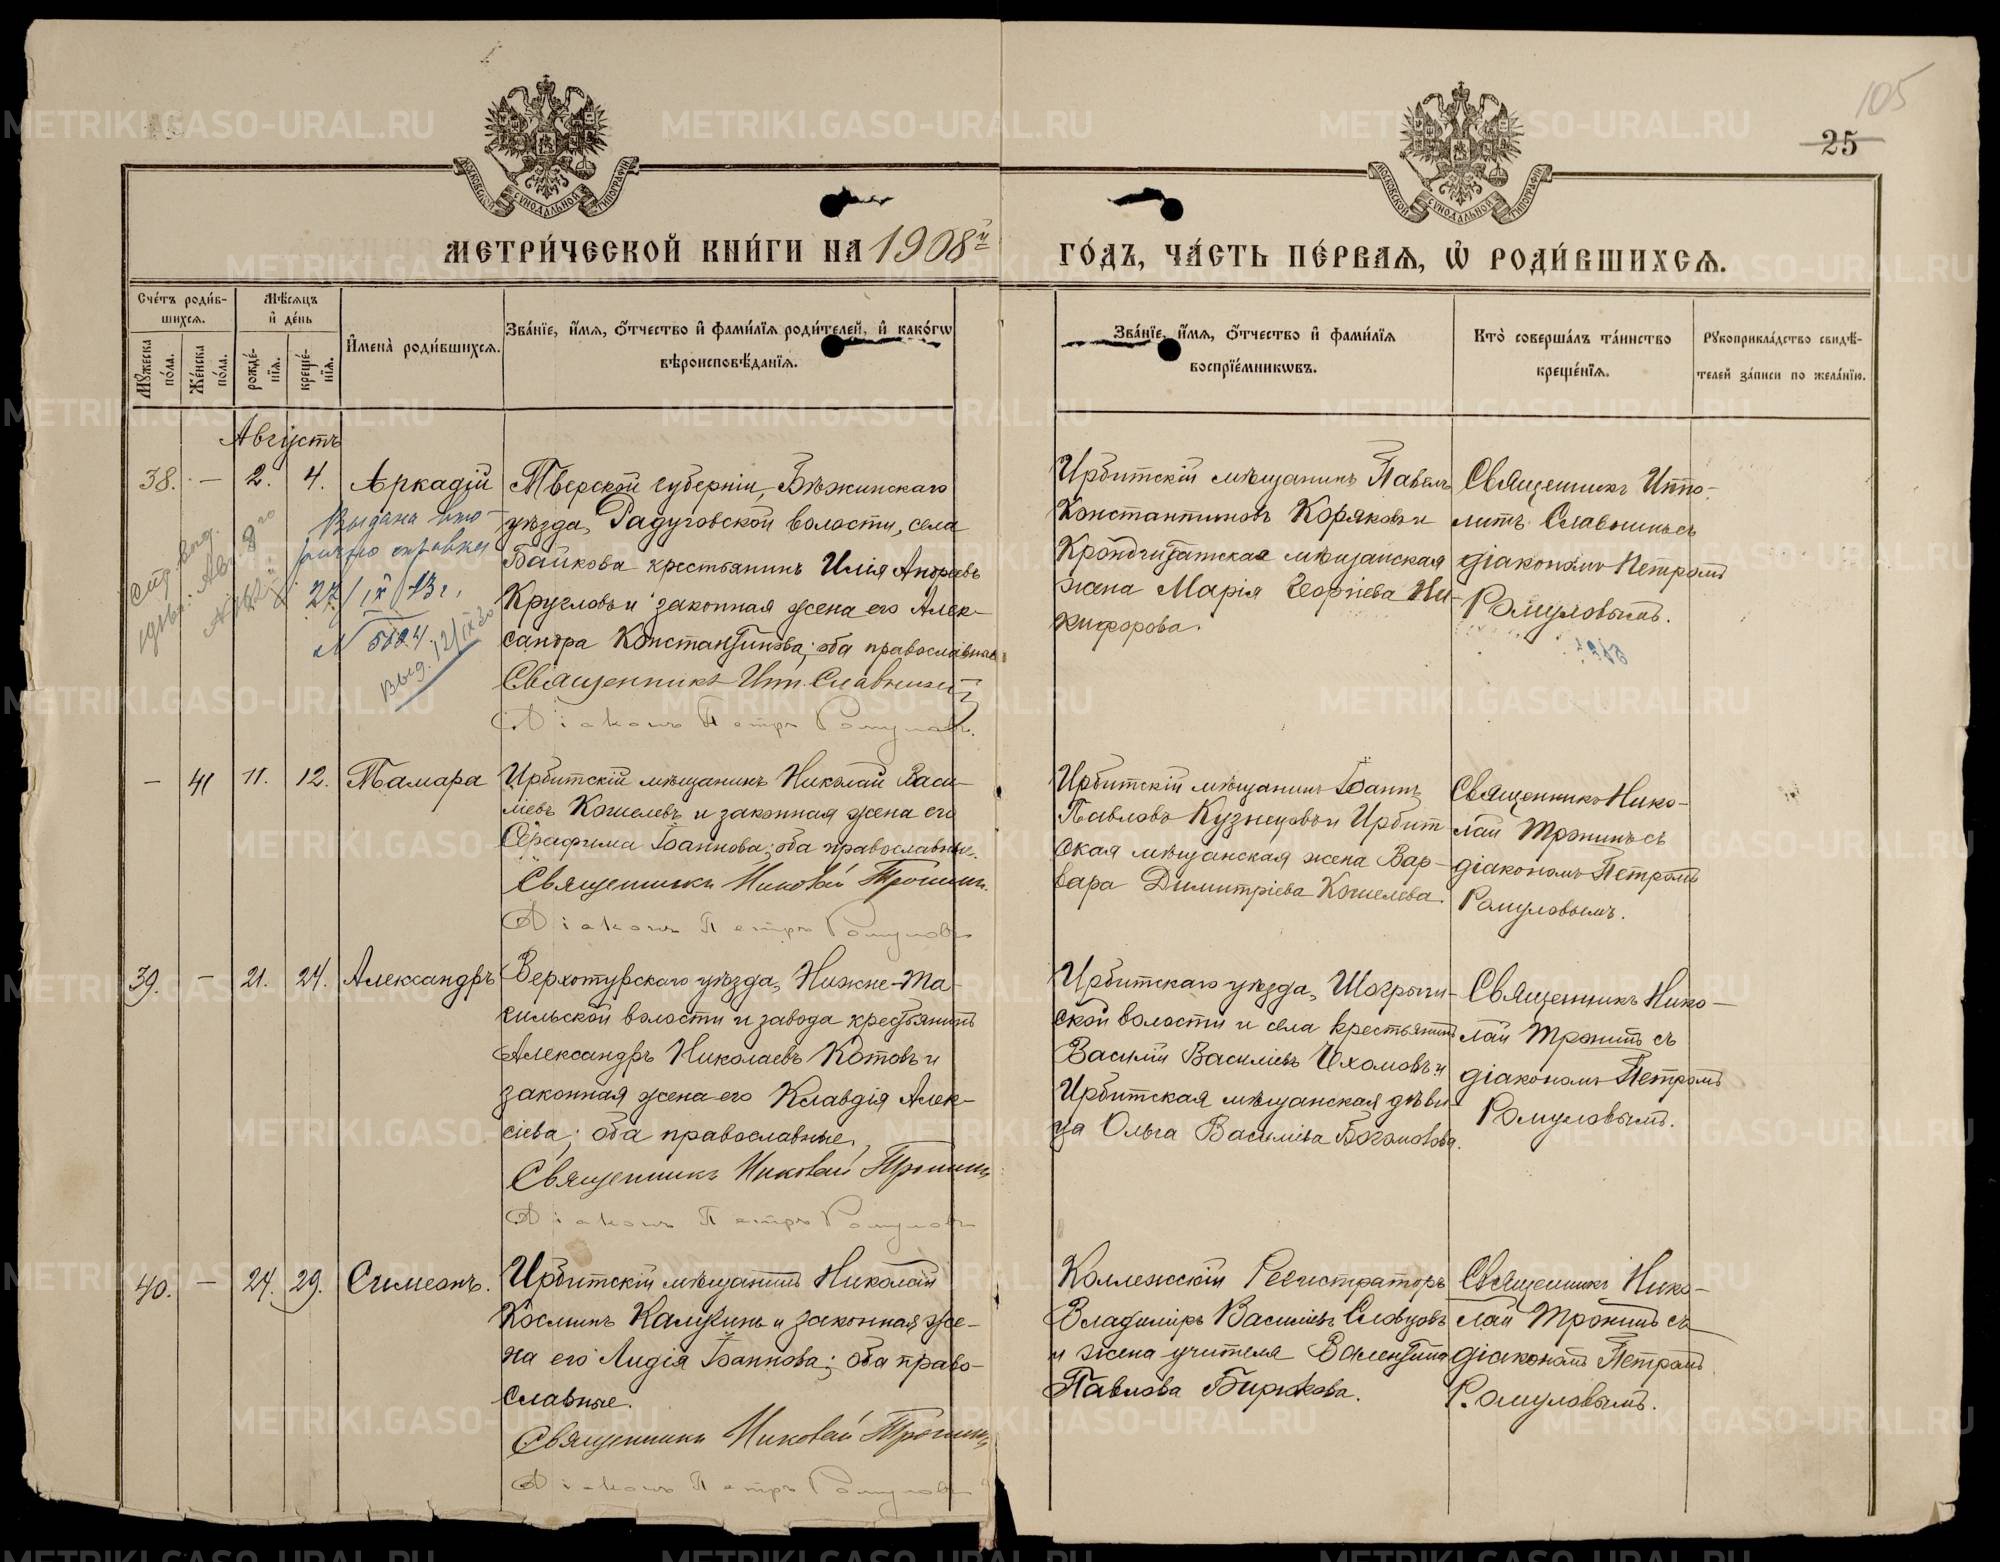 105
25
МОСКОВСКОЙ СѴНОДАЛЬНОЙ ТИПОГРАФІИ
МОСКОВСКОЙ СѴНОДАЛЬНОЙ ТИПОГРАФІИ
МЕТРИ́ЧЕСКОЙ КНИ́ГИ НА 1908й
ГО́ДЪ, ЧА́СТЬ ПЕ́РВАЯ, Ѡ РОДИ́ВШИХСЯ.
Сче́тъ роди́вшихся.
Му́жеска по́ла.
Же́нска по́ла.
Мѣ́сяцъ и де́нь
рожде́нїя.
креще́нїя.
Имена̀ роди́вшихся.
Зва́нїе, и́мя, о́тчество и фами́лїя роди́телей, и како́гѡ
вѣроисповѣ́данїя.
Зва́нїе, и́мя, о́тчество и фами́лїя
воспрїе́мникѡвъ.
Кто̀ соверша́лъ та́инство
креще́нїя.
Рукоприкла́дство свидѣ́-
телей за́писи по жела́нїю.
Августъ
38. — 2. 4. Аркадій
Тверской губерніи, Бѣжицкаго
уѣзда, Радуговской волости, села
Байкова крестьянинъ Илія Андреевъ
Кругловъ и законная жена его Алек-
сандра Константинова; оба православные
Священникъ Ипп. Славнинъ
Діаконъ Петръ Ромуловъ.
Выдана вто-
рично справка
27/IX 13 г.
N 5124
Выд. 12/IX 20
Ирбитскій мѣщанинъ Павелъ
Константиновъ Коряковъ и
Кронштатская мѣщанская
жена Марія Георгіева Ни-
кифорова.
Священникъ Иппо-
литъ Славнинъ съ
діакономъ Петромъ
Ромуловымъ.
— 41 11. 12. Тамара
Ирбитскій мѣщанинъ Николай Васи-
ліевъ Кошелевъ и законная жена его
Серафима Іоаннова; оба православные.
Священникъ Николай Тронинъ.
Діаконъ Петръ Ромуловъ
Ирбитскій мѣщанинъ Іоаннъ
Павловъ Кузнецовъ и Ирбит
ская мѣщанская жена Вар-
вара Димитріева Кошелева.
Священникъ Нико-
лай Тронинъ съ
діакономъ Петромъ
Ромуловымъ.
39. — 21. 24. Александръ
Верхотурскаго уѣзда, Нижне-Та-
гильской волости и завода крестьянинъ
Александръ Николаевъ Котовъ и
законная жена его Клавдія Алек-
сіева; оба православные,
Священникъ Николай Тронинъ
Діаконъ Петръ Ромуловъ
Ирбитскаго уѣзда, Шогриш-
ской волости и села крестьянинъ
Василій Василіевъ Чхомовъ и
Ирбитская мѣщанская дѣви-
ца Ольга Василіева Богомолова.
Священникъ Нико-
лай Тронинъ съ
діакономъ Петромъ
Ромуловымъ.
40. — 24. 29. Симеонъ.
Ирбитскій мѣщанинъ Николай
Косминъ Калугинъ и законная же-
на его Лидія Іоаннова; оба право-
славные.
Священникъ Николай Тронинъ
Діаконъ Петръ Ромуловъ
Коллежскій Регистраторъ
Владиміръ Василіевъ Словцовъ
и жена учителя Валентина
Павлова Бирюкова.
Священникъ Нико-
лай Тронинъ съ
діакономъ Петромъ
Ромуловымъ.
METRIKI.GASO-URAL.RU